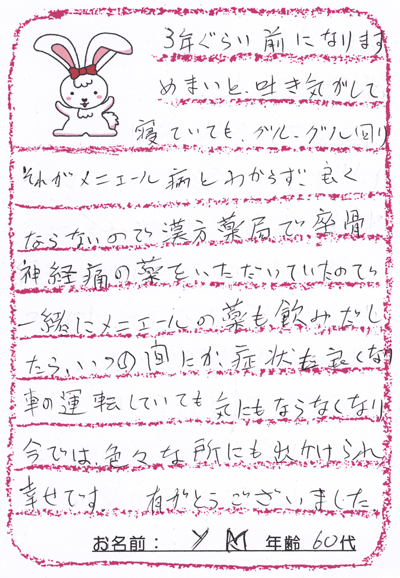 3年ぐらい前になります
めまいと、吐き気がして
寝ていても、グル、グル回り
それがメニエール病とわからず、良く
ならないので漢方薬局で、坐骨
神経痛の薬をいただいていたのでら
一緒にメニエールの薬も飲みだし
たら、いつの間にか、症状も良くなり
車の運転していても気にもならなくなり
今では、色々な所にも出かけられ
幸せです。 有がとうございました。
お名前： Y M 年齢 60代